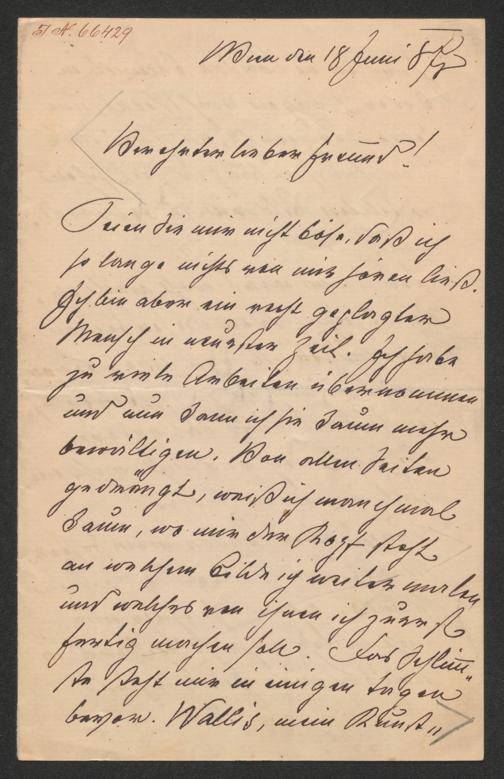 I. N. 66429
Wien den 18 Juni
Verehrter lieber Freund!
Seien Sie mir nicht böse, daß ich
so lange nichts von mir hören ließ.
Ich bin aber ein recht geplagter
Mensch in neuester Zeit. Ich habe
zu viele Arbeiten übernommen
und nun kann ich sie kaum mehr
bewältigen. Von allen Seiten
gedrängt, weiß ich manchmal
kaum, wo mir der Kopf steht
an welchem Bilde ich weiter malen
und welches von ihnen ich zuerst
fertig machen soll. Das Schlimm„
ste steht mir in einigen Tagen
bevor. Wallis, mein Kunst„